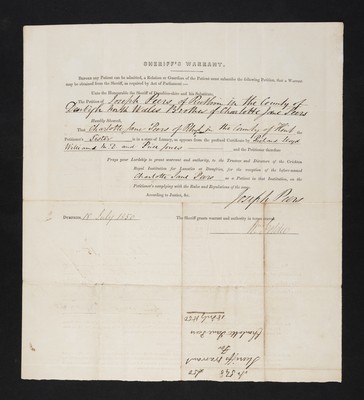 SHERIFF'S WARRANT.
BEFORE any Patient can be admitted, a Relation or Guardian of the Patient must subscribe the following Petition, that a Warrant
may be obtained from the Sheriff, as required by Act of Parliament:—
Unto the Honourable the Sheriff of Dumfries-shire and his Substitutes,
The Petition of Joseph Peers, of Ruthin in the County of
Denbigh North Wales Brother of Charlotte Jane Peers
Humbly Sheweth,
That Charlotte Jane Peers of Rhyl in the County of Flint,
Petitioner's Sister is in a state of Lunacy, as appears from the prefixed Certificate by Richard Lloyd
Williams M.D. and Price Jones and the Petitioner therefore
Prays your Lordship to grant warrant and authority to the Trustees and Directors of the Crichton
Royal Institution for Lunatics at Dumfries, for the reception of the before-named
Charlotte Jane Peers as a Patient in that Institution, on the
Petitioner's complying with the Rules and Regulations of the same.
According to Justice, &c.
Joseph Peers
DUMFRIES, 18 July 1850 The Sheriff grants warrant and authority in terms
Sheriff's Warrant
For
Charlotte Jane Peers
18 July 1850